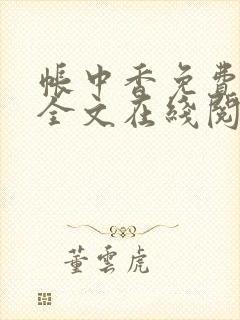 帳中香免費
全文在綫閱
董雲虎